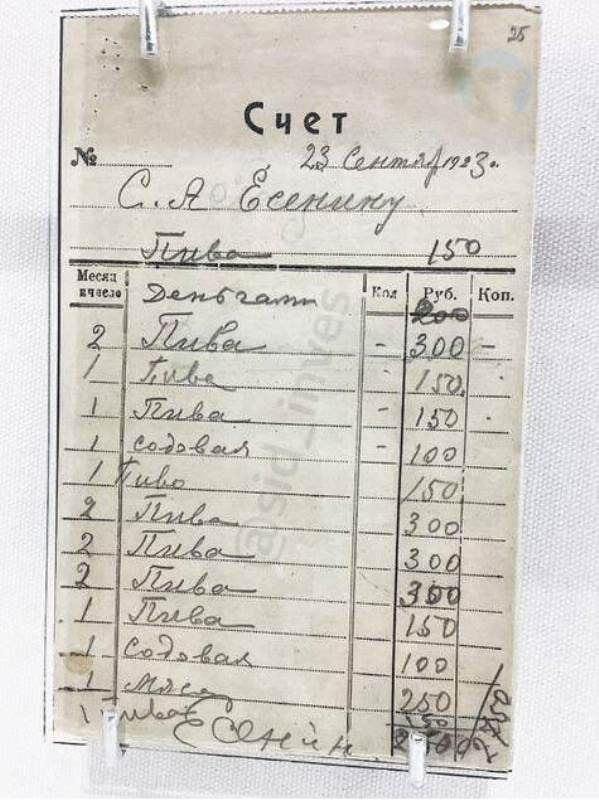 25
Счет
№ 23 Сентяб 1923г.
С. А Есенину
Пива 150
Месяц и число Деньгами Кол Руб. Коп.
200
2 Пива - 300 -
1 Пива - 150 -
1 Пива - 150 -
1 содовая - 100
1 Пиво 150
2 Пива 300
2 Пива 300
2 Пива 300
1 Пива 150
1 Содовая 100
1 мясо 250
1 пива 150
Есенин
@sid_inves